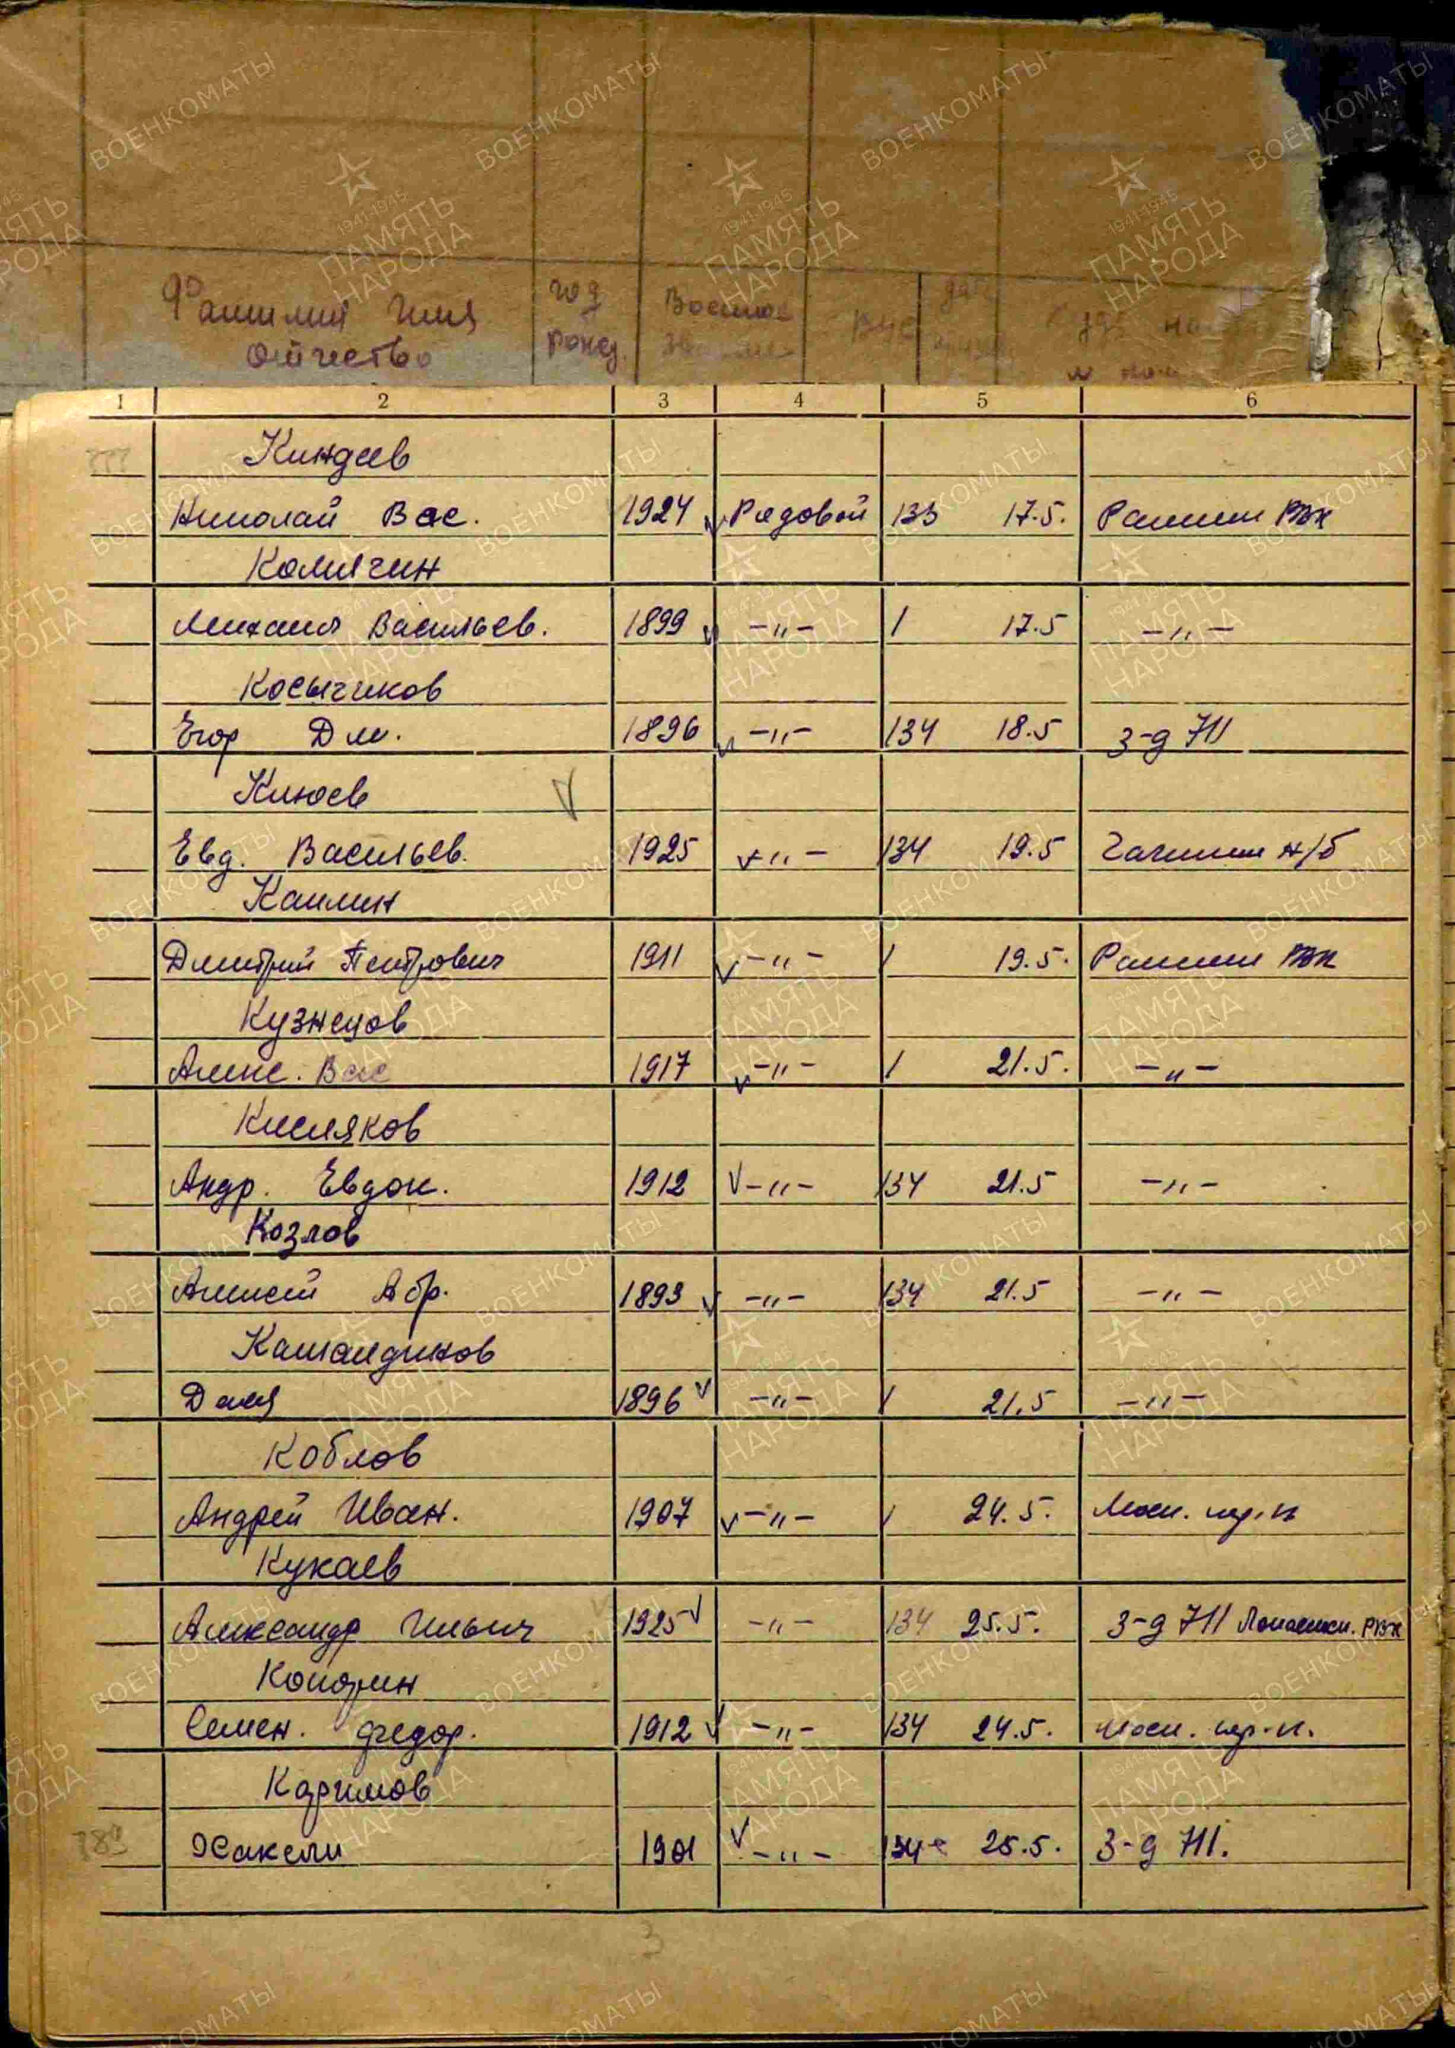 Фамилия Имя Отчество
год рожд.
Военное звание
ВУС
1 2 3 4 5 6
Киндеев
Николай Вас. 1924 Рядовой 133 17.5. РВК
Калягин
Михаил Васильев. 1899 -"- 1 17.5 -"-
Косычиков
Егор Дм. 1896 -"- 134 18.5 З-д 711
Клюев
Евд. Васильев. 1925 -"- 134 19.5 н/б
Калинин
Дмитрий Петрович 1911 -"- 1 19.5. РВК
Кузнецов
Алекс. Вас 1917 -"- 1 21.5. -"-
Кисляков
Андр. Евдок. 1912 -"- 134 21.5 -"-
Козлов
Алексей Абр. 1893 -"- 134 21.5 -"-
1896 -"- 1 21.5 -"-
Коблов
Андрей Иван. 1907 -"- 1 24.5. Моск.
Кукаев
Александр Ильич 1925 -"- 134 25.5. З-д 711 РВК
Семен. Федор. 1912 -"- 134 24.5. Моск.
Каримов
Хакели 1901 -"- 134 25.5. З-д 711.
789
3
ВОЕНКОМАТЫ
1941-1945
ПАМЯТЬ
НАРОДА